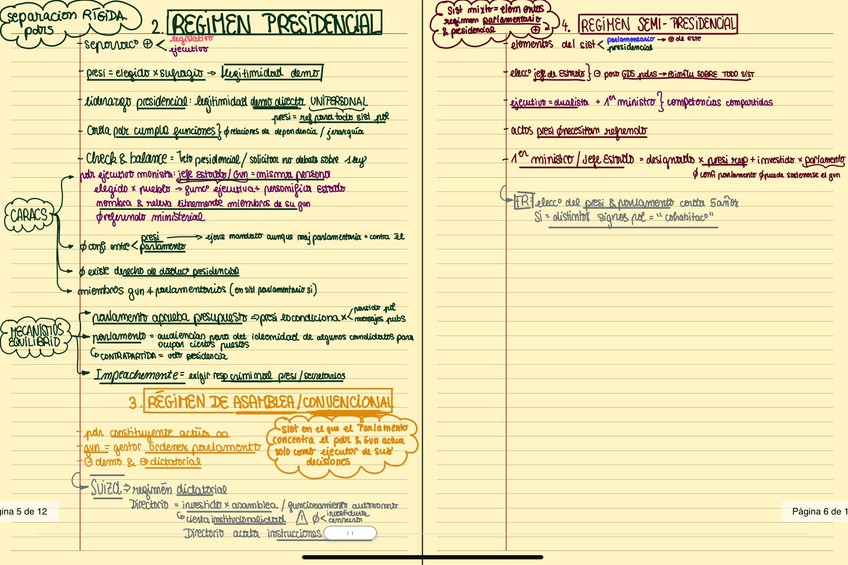 separación RÍGIDA
pdrs
2. REGIMEN PRESIDENCIAL
- separacº ⊕ < legislativo
ejecutivo
- presi = elegido x sufragio → legitimidad demo
- liderazgo presidencial: legitimidad demo directa UNIPERSONAL
presi = rep para todo sist pol
- Cada pdr cumple funciones} ∅ relaciones de dependencia / jerarquía
- Check & balance = veto presidencial / solicitar no debate sobre 1 ley
CARACS
pdr ejecutivo monista: jefe estado / gvn = misma persona
elegido x pueblo → funcº ejecutiva + personifica Estado
nombra & releva libremente miembros de su gvn
∅ referendo ministerial
∅ confi entre < presi → ejerce mandato aunque maj parlamentaria = contra él
parlamento
∅ existe derecho de disolucº presidencial
miembros gvn ≠ parlamentarios (en sist parlamentario sí)
MECANISMOS
EQUILIBRIO
parlamento aprueba presupuesto → presi lo condiciona x < partido pol
mensajes pubs
parlamento = audiencias para det idoneidad de algunos candidatos para
ocupar ciertos puestos
↳ CONTRAPARTIDA = veto presidencia
Impeachemente = exigir resp criminal presi / secretarios
3. RÉGIMEN DE ASAMBLEA / CONVENCIONAL
- pdr constituyente actúa
- gvn = gestor órdenes parlamento
- ⊖ demo & ⊕ dictatorial
sist en el que el Parlamento
concentra el pdr & Gvn actúa
solo como ejecutor de sus
decisiones
SUIZA → regimén dictatorial
Directorio = investido x asamblea / funcionamiento autonomo
↳ cierta institucionalidad ⚠ ∅ < investidura
censura
Directorio acata instrucciones
gina 5 de 12
sist mixto = elementos
regimen parlamentario
& presidencial
4. REGIMEN SEMI-PRESIDENCIAL
- elementos del sist < parlamentario → ⊕ de este
presidencial
- eleccº jefe de Estado} ⊖ pero GDS pdrs → SOBRE TODO SIST
- ejecutivo = dualista + 1er ministro} competencias compartidas
- actos presi ∅ necesitan refrendo
- 1er ministro / Jefe Estado = designado x presi rep + investido x parlamento
∅ confi parlamento ∅ puede sostenerse el gvn
FR eleccº del presi & parlamento cada 5 años
Si = distintos signos pol = "cohabitacº"
Página 6 de 1